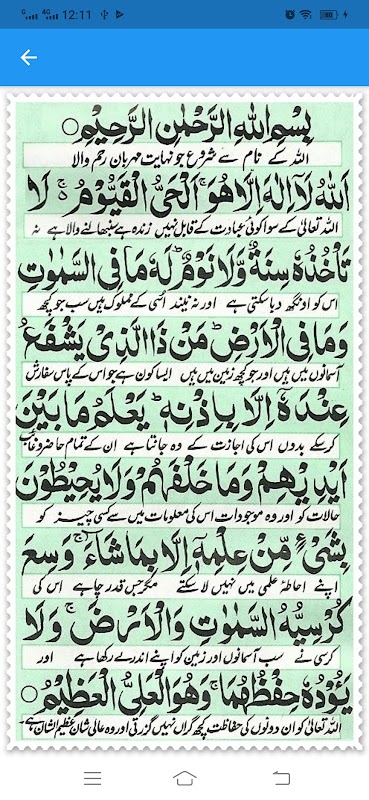 12:11
بِسْمِ اللهِ الرَّحْمٰنِ الرَّحِيْمِ
اللہ کے نام سے شروع جو نہایت مہربان رحم والا
اَللهُ لَآ اِلٰهَ اِلَّا هُوَ ۚ اَلْحَيُّ الْقَيُّوْمُ ۚ لَا
اللہ تعالیٰ کے سوا کوئی عبادت کے قابل نہیں زندہ ہے سنبھالنے والا ہے نہ
تَاْخُذُهٗ سِنَةٌ وَّلَا نَوْمٌ ؕ لَهٗ مَا فِي السَّمٰوٰتِ
اس کو اونگھ دبا سکتی ہے اور نہ نیند اسی کے مملوک ہیں سب جو کچھ
وَمَا فِي الْاَرْضِ ؕ مَنْ ذَا الَّذِيْ يَشْفَعُ
آسمانوں میں ہیں اور جو کچھ زمین میں ہیں ایسا کون ہے جو اس کے پاس سفارش
عِنْدَهٗٓ اِلَّا بِاِذْنِهٖ ؕ يَعْلَمُ مَا بَيْنَ
کرسکے بدوں اس کی اجازت کے وہ جانتا ہے ان کے تمام حاضر و غائب
اَيْدِيْهِمْ وَمَا خَلْفَهُمْ ۚ وَلَا يُحِيْطُوْنَ
حالات کو اور وہ موجودات اس کی معلومات میں سے کسی چیز کو
بِشَيْءٍ مِّنْ عِلْمِهٖٓ اِلَّا بِمَا شَآءَ ۚ وَسِعَ
اپنے احاطۂ علمی میں نہیں لا سکتے مگر جس قدر چاہے اس کی
كُرْسِيُّهُ السَّمٰوٰتِ وَالْاَرْضَ ۚ وَلَا
کرسی نے سب آسمانوں اور زمین کو اپنے اندر لے رکھا ہے اور
يَـُٔوْدُهٗ حِفْظُهُمَا ۚ وَهُوَ الْعَلِيُّ الْعَظِيْمُ
اللہ تعالیٰ کو ان دونوں کی حفاظت کچھ گراں نہیں گزرتی اور وہ عالی شان عظیم الشان ہے۔